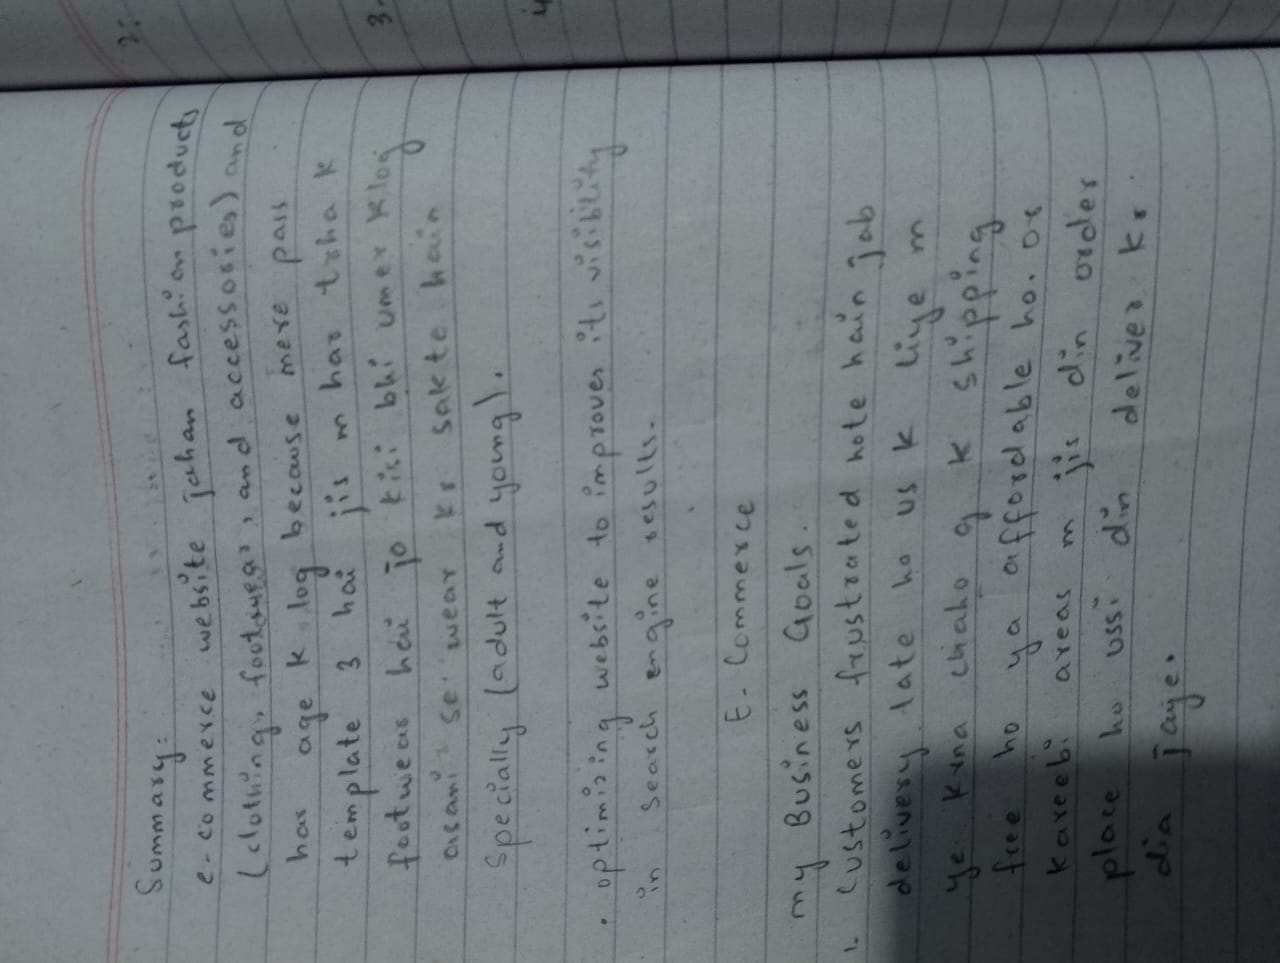 2.
3.
4
Summary:
e-commerce website jahan fashion products
(clothing, footwear, and accessories) and
har age k log because mere pass
template 3 hai jis m har trha k
footwear hai jo kisi bhi umer k log
asani se wear kr sakte hain
specially (adult and young).
. optimizing website to improves its visibility
in search engine results.
E-Commerce
my Business Goals.
1. Customers frustrated hote hain jab
delivery late ho us k liye m
ye krna chaho g k shipping
free ho ya affordable ho. or
kareebi areas m jis din order
place ho ussi din deliver kr
dia jaye.